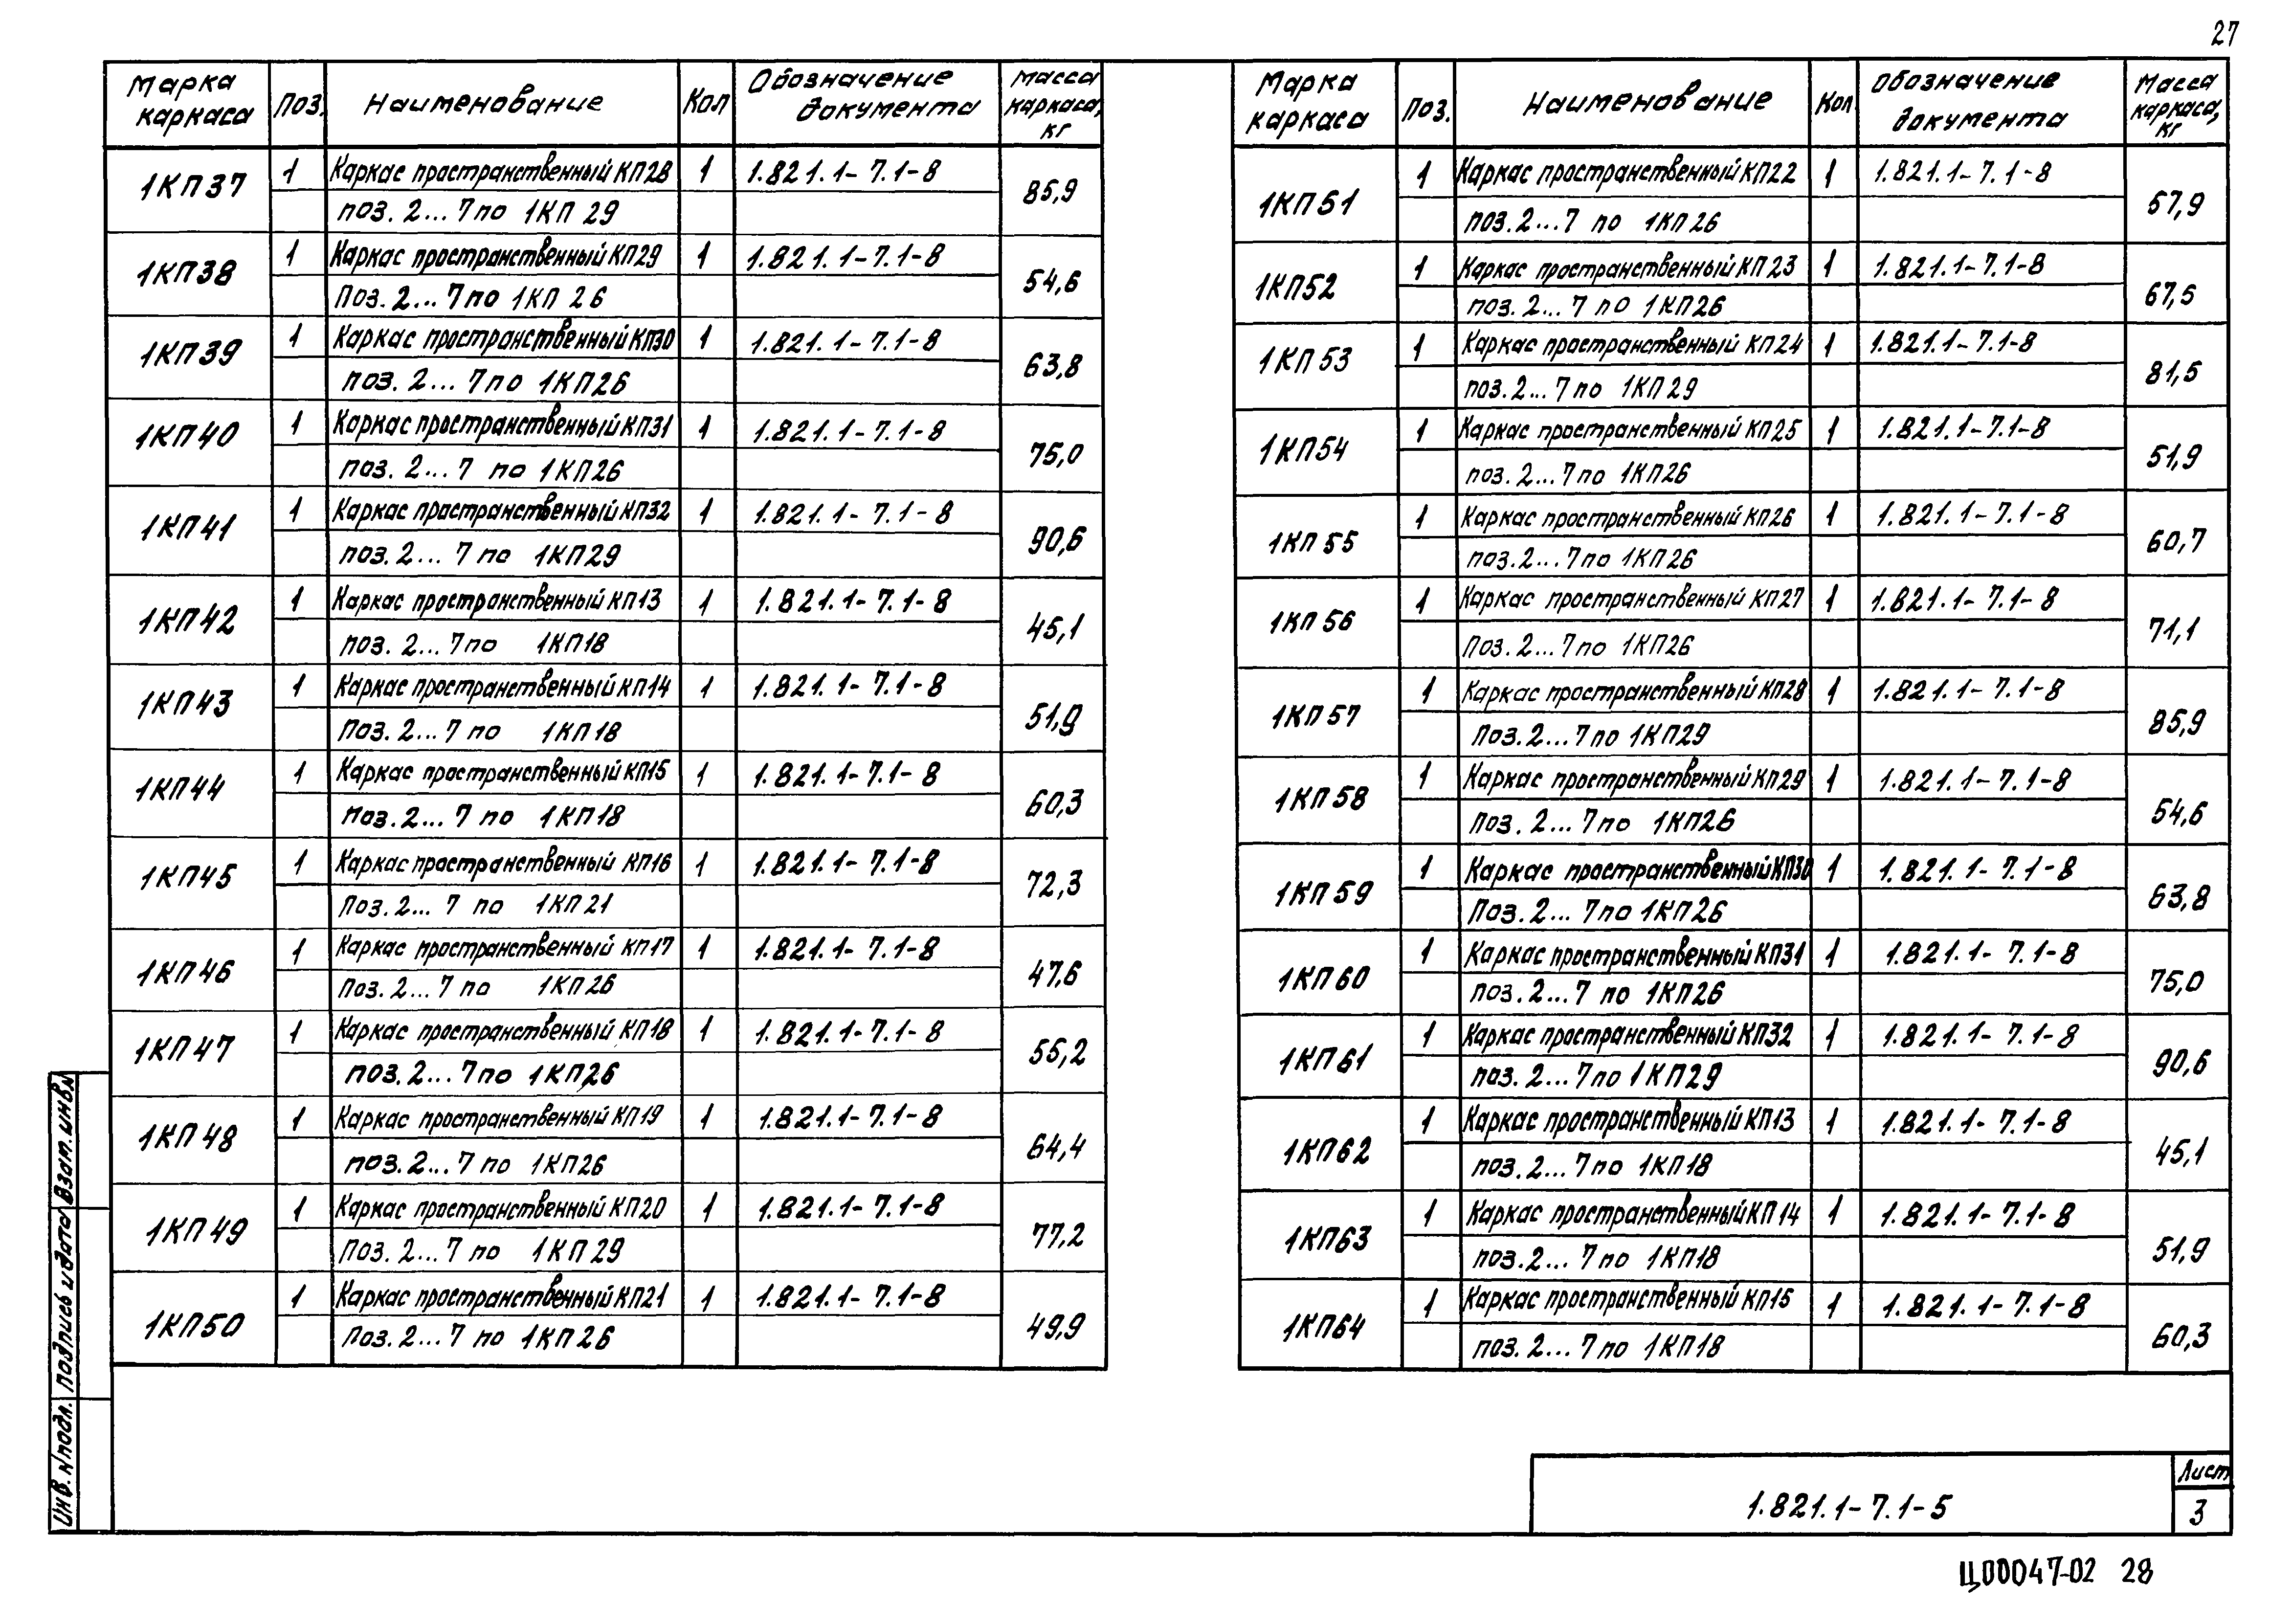 27
Марка каркаса Поз. Наименование Кол Обозначение документа Масса каркаса, кг
1КП37 1 Каркас пространственный КП28 1 1.821.1-7.1-8 85,9
поз. 2...7 по 1КП29
1КП38 1 Каркас пространственный КП29 1 1.821.1-7.1-8 54,6
Поз. 2...7 по 1КП26
1КП39 1 Каркас пространственный КП30 1 1.821.1-7.1-8 63,8
поз. 2...7 по 1КП26
1КП40 1 Каркас пространственный КП31 1 1.821.1-7.1-8 75,0
поз. 2...7 по 1КП26
1КП41 1 Каркас пространственный КП32 1 1.821.1-7.1-8 90,6
поз. 2...7 по 1КП29
1КП42 1 Каркас пространственный КП13 1 1.821.1-7.1-8 45,1
поз. 2...7 по 1КП18
1КП43 1 Каркас пространственный КП14 1 1.821.1-7.1-8 51,9
Поз. 2...7 по 1КП18
1КП44 1 Каркас пространственный КП15 1 1.821.1-7.1-8 60,3
Поз. 2...7 по 1КП18
1КП45 1 Каркас пространственный КП16 1 1.821.1-7.1-8 72,3
Поз. 2...7 по 1КП21
1КП46 1 Каркас пространственный КП17 1 1.821.1-7.1-8 47,6
Поз. 2...7 по 1КП26
1КП47 1 Каркас пространственный КП18 1 1.821.1-7.1-8 55,2
поз. 2...7 по 1КП26
1КП48 1 Каркас пространственный КП19 1 1.821.1-7.1-8 64,4
поз. 2...7 по 1КП26
1КП49 1 Каркас пространственный КП20 1 1.821.1-7.1-8 77,2
Поз. 2...7 по 1КП29
1КП50 1 Каркас пространственный КП21 1 1.821.1-7.1-8 49,9
Поз. 2...7 по 1КП26
Марка каркаса Поз. Наименование Кол Обозначение документа Масса каркаса, кг
1КП51 1 Каркас пространственный КП22 1 1.821.1-7.1-8 57,9
поз. 2...7 по 1КП26
1КП52 1 Каркас пространственный КП23 1 1.821.1-7.1-8 67,5
поз. 2...7 по 1КП26
1КП53 1 Каркас пространственный КП24 1 1.821.1-7.1-8 81,5
поз. 2...7 по 1КП29
1КП54 1 Каркас пространственный КП25 1 1.821.1-7.1-8 51,9
поз. 2...7 по 1КП26
1КП55 1 Каркас пространственный КП26 1 1.821.1-7.1-8 60,7
поз. 2...7 по 1КП26
1КП56 1 Каркас пространственный КП27 1 1.821.1-7.1-8 71,1
Поз. 2...7 по 1КП26
1КП57 1 Каркас пространственный КП28 1 1.821.1-7.1-8 85,9
Поз. 2...7 по 1КП29
1КП58 1 Каркас пространственный КП29 1 1.821.1-7.1-8 54,6
Поз. 2...7 по 1КП26
1КП59 1 Каркас пространственный КП30 1 1.821.1-7.1-8 63,8
Поз. 2...7 по 1КП26
1КП60 1 Каркас пространственный КП31 1 1.821.1-7.1-8 75,0
поз. 2...7 по 1КП26
1КП61 1 Каркас пространственный КП32 1 1.821.1-7.1-8 90,6
поз. 2...7 по 1КП29
1КП62 1 Каркас пространственный КП13 1 1.821.1-7.1-8 45,1
поз. 2...7 по 1КП18
1КП63 1 Каркас пространственный КП14 1 1.821.1-7.1-8 51,9
поз. 2...7 по 1КП18
1КП64 1 Каркас пространственный КП15 1 1.821.1-7.1-8 60,3
поз. 2...7 по 1КП18
Инв. №подл. Подпись и дата Взам. инв.№
1.821.1-7.1-5
Лист
3
Ц00047-02 28